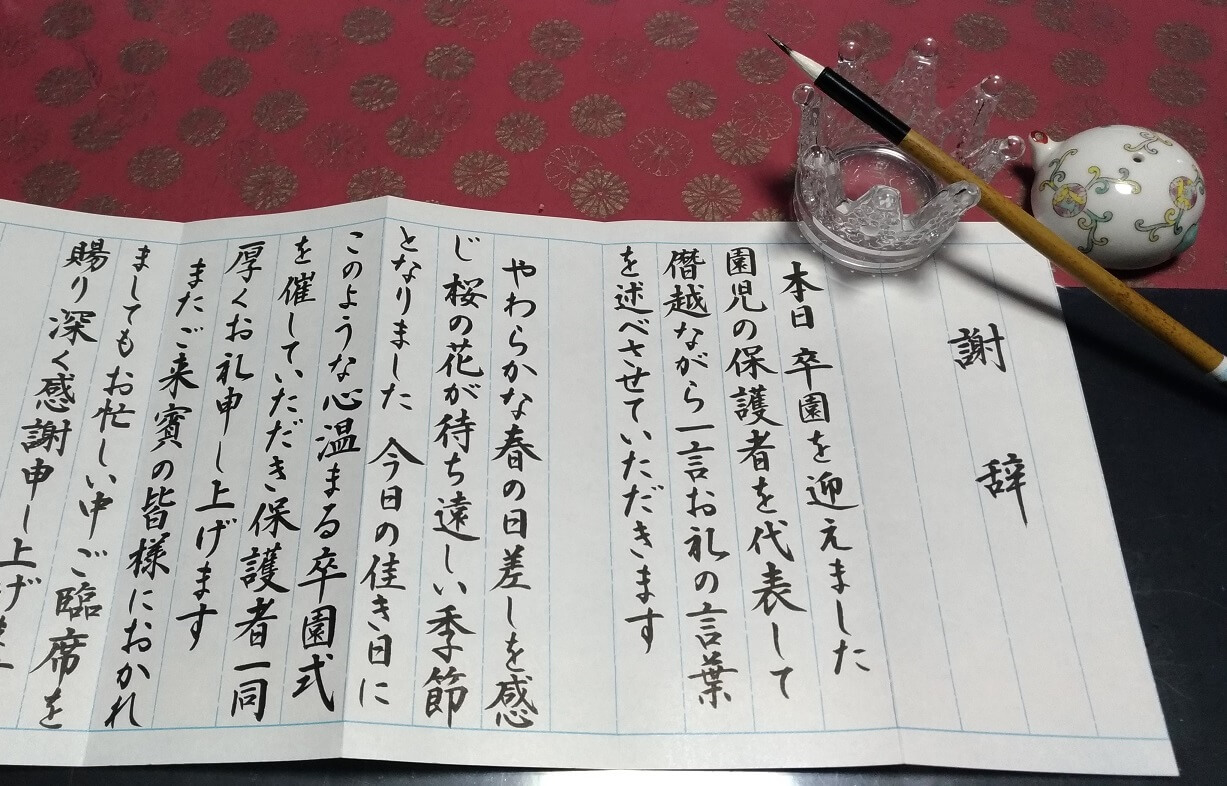 謝辞
本日 卒園を迎えました
園児の保護者を代表して
僭越ながら一言お礼の言葉
を述べさせていただきます
やわらかな春の日差しを感
じ 桜の花が待ち遠しい季節
となりました 今日の佳き日に
このような心温まる卒園式
を催していただき保護者一同
厚くお礼申し上げます
またご来賓の皆様におかれ
ましてもお忙しい中ご臨席を
賜り深く感謝申し上げま